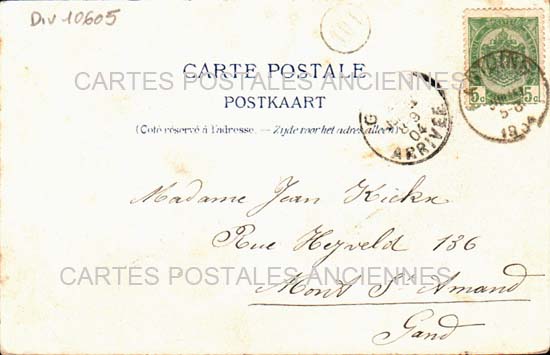 Div 10605
101
CARTE POSTALE
CARTES POSTALES ANCIENNES
POSTKAART
(Côté réservé à l'adresse. — Zijde voor het adres alleen)
5c 5c
1904
G
8-9
04
ARRIVÉE
Madame Jean Kickx
Rue Heyveld 136
CARTES POSTALES ANCIENNES
Mont St Amand
Gand